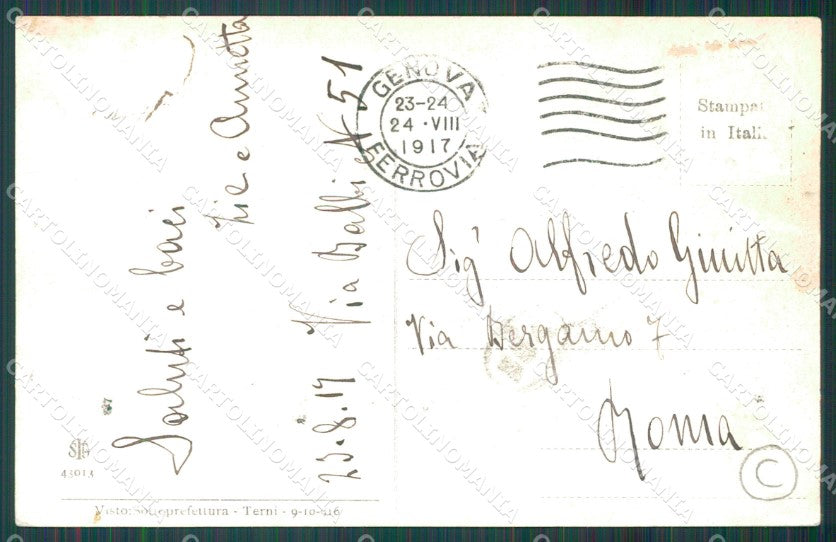 GENOVA
23-24
24 · VIII
1917
FERROVIA
Stampat
in Itali
Saluti e baci
Zia e Annetta
23.8.17 Via Balbi N 51
Sig' Alfredo
Via Bergamo 7
Roma
C
43013
Visto: Sottoprefettura - Terni - 9-10-916
CARTOLINOMANIA